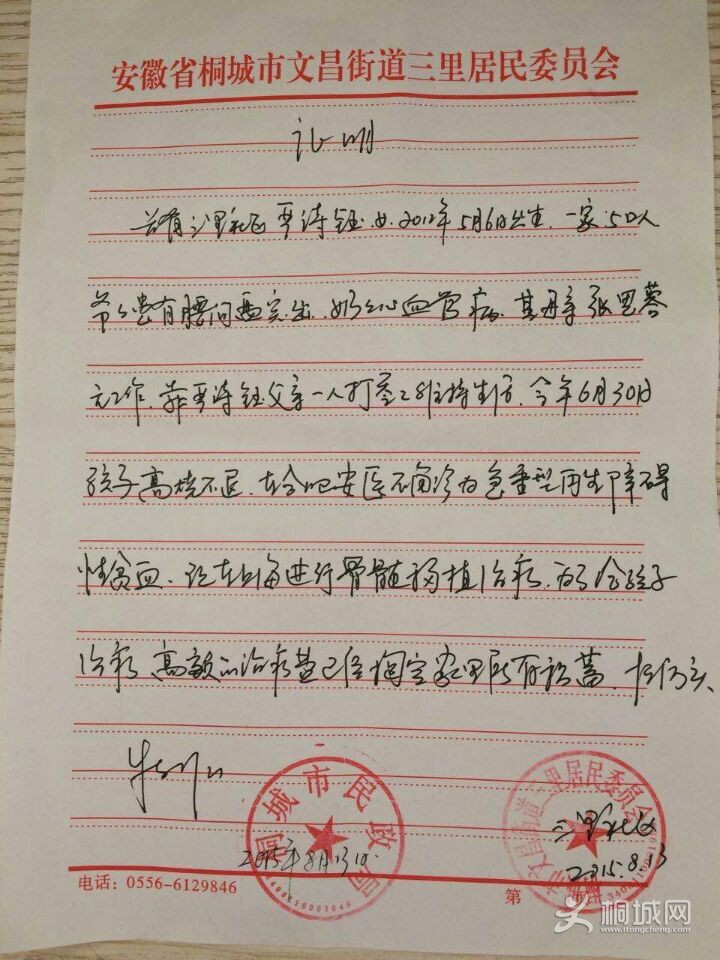 安徽省桐城市文昌街道三里居民委员会
证明
兹有三里社区严诗钰,女,2012年5月6日出生,一家5口人
爷爷患有腰间盘突出,奶奶心血管病,其母亲张思蓉
无工作,靠严诗钰父亲一人打零工维持生活,今年6月30日
孩子高烧不退,在合肥安医确诊为急重型再生障碍
性贫血,现在上海进行骨髓移植治疗,为了给孩子
治病,高额的治病费已经掏空家里所有积蓄,情况属实
特此证明
桐城市民政局
2015年8月13日
3408810005048
桐城市文昌街道三里居民委员会
三里社区
2015.8.13
电话:0556-6129846
第 页
桐城网
www.itongcheng.com